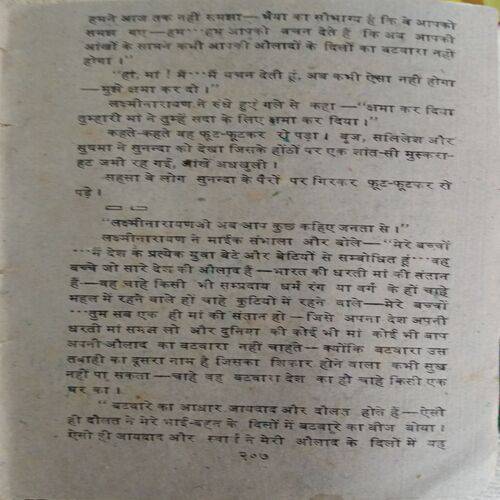 हमने आज तक नहीं समझा—भैया का सौभाग्य है कि वे आपको
समझ गए—हम···हम आपको वचन देते हैं कि अब आपकी
आंखों के सामने कभी आपकी औलादों के दिलों का बटवारा नहीं
होगा ।"
"हां, मां ! मैं···मैं वचन देती हूं, अब कभी ऐसा नहीं होगा
—मुझे क्षमा कर दो ।"
लक्ष्मीनारायण ने रुंधे हुए गले से कहा—"क्षमा कर दिया
तुम्हारी मां ने तुम्हें सदा के लिए क्षमा कर दिया ।"
कहते-कहते वह फूट-फूटकर रो पड़ा । बृज, सलिलेश और
सुषमा ने सुनन्दा को देखा जिसके होंठों पर एक शांत-सी मुस्करा-
हट जमी रह गई, आंखें अधखुली ।
सहसा वे लोग सुनन्दा के पैरों पर गिरकर फूट-फूटकर रो
पड़े ।
"लक्ष्मीनारायणजी अब आप कुछ कहिए जनता से ।"
लक्ष्मीनारायण ने माईक संभाला और बोले—"मेरे बच्चों
···मैं देश के प्रत्येक युवा बेटे और बेटियों से सम्बोधित हूं···वह
बच्चे जो सारे देश की औलाद हैं—भारत की धरती मां की संतान
हैं—वह चाहे किसी भी सम्प्रदाय धर्म रंग या वर्ग के हों चाहे
महल में रहने वाले हों चाहे कुटियों में रहने वाले—मेरे बच्चों
···तुम सब एक ही मां की संतान हो—जिसे अपना देश अपनी
धरती मां समझ लो और दुनिया की कोई भी मां कोई भी बाप
अपनी औलाद का बटवारा नहीं चाहते—क्योंकि बटवारा उस
तबाही का दूसरा नाम है जिसका शिकार होने वाला कभी सुख
नहीं पा सकता—चाहे वह बटवारा देश का हो चाहे किसी एक
घर का ।
"बटवारे का आधार जायदाद और दौलत होते हैं—ऐसी
ही दौलत ने मेरे भाई-बहन के दिलों में बटवारे का बीज बोया ।
ऐसी ही जायदाद और स्वार्थ ने मेरी औलाद के दिलों में यह
२०७